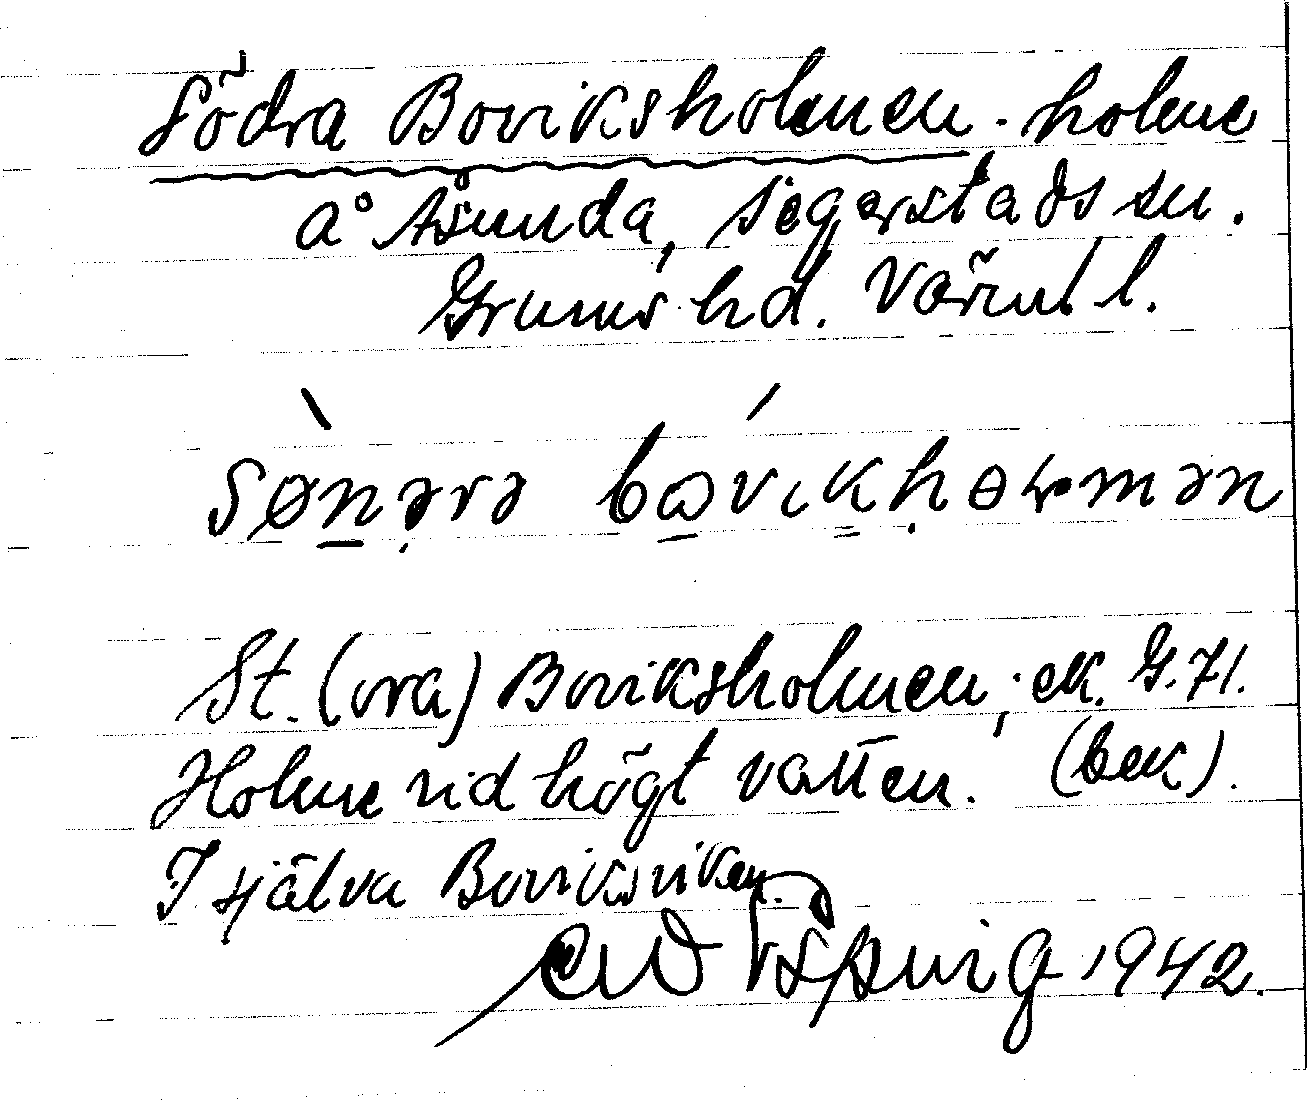 Södra Boviksholmen. holme
å Åsunda, Segerstads sn.
Grums hd. Värml l.
sønərə bɷvikhɵɽmən
St.(ora) Boviksholmen; ek. G.71.
Holme vid högt vatten. (bek).
I själva Boviksviken.
1942.